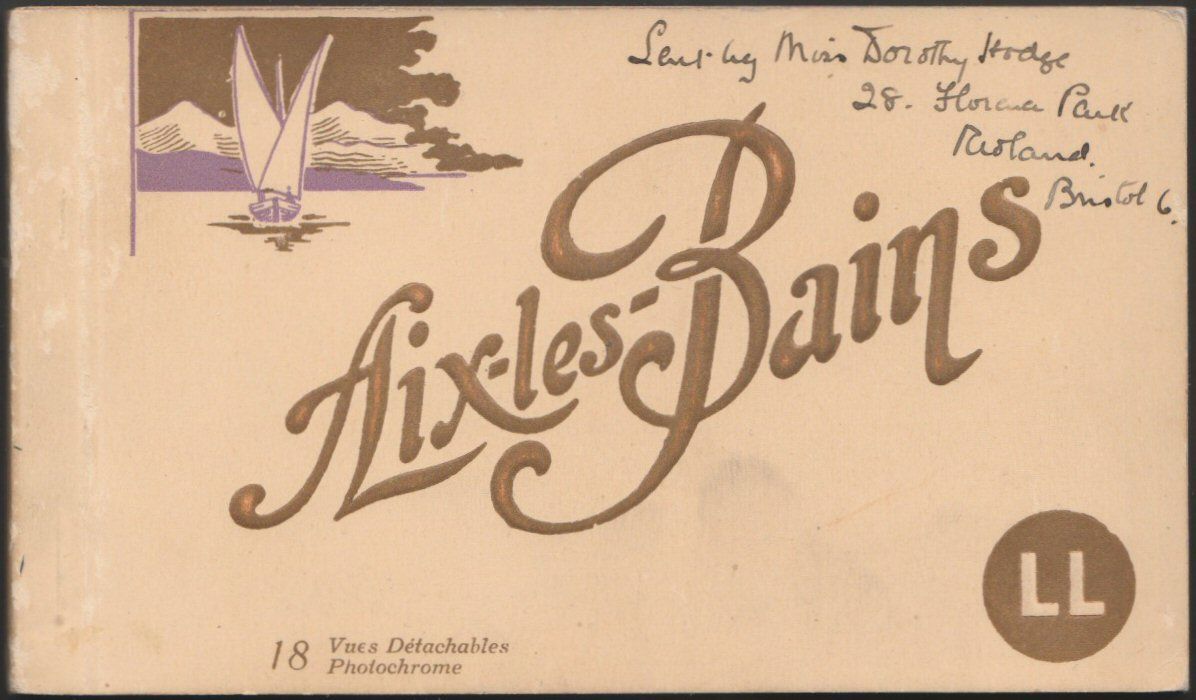 Lent by Miss Dorothy Hodge
28. Florence Park
Redland.
Bristol 6.
Aix-les-Bains
LL
18 Vues Détachables
Photochrome